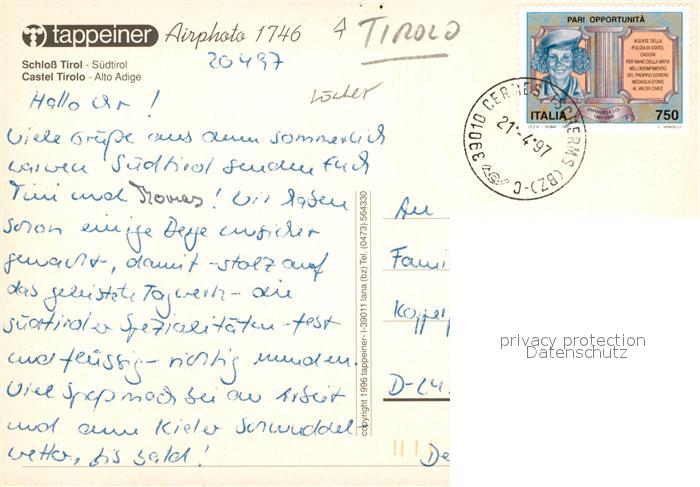 tappeiner Airphoto 1746 TIROLO
20497
Schloß Tirol - Südtirol
Castel Tirolo - Alto Adige
Hallo Ihr!
Löcher
Viele Grüße aus dem sommerlich
warmen Südtirol senden Euch
Tini und Thomas! Wir haben
schon einige Berge unsicher
gemacht, damit - stolz auf
das geleistete Tagwerk - die
südtiroler Spezialitäten - fest
und flüssig - richtig munden.
Viel Spaß noch bei der Arbeit
und dem Kieler Schmuddel-
wetter, bis bald!
copyright 1996 tappeiner - I-39011 lana (bz) Tel. (0473) 564330
PARI OPPORTUNITÀ
AGENTE DELLA
POLIZIA DI STATO,
CADUTA
PER MANO DELLA MAFIA
NELL'ADEMPIMENTO
DEL PROPRIO DOVERE
MEDAGLIA D'ORO
AL VALOR CIVILE
EMANUELA LOI
1967-1992
ITALIA 750
I.P.Z.S. - ROMA - 1997 L. VANGELLI
39010 CERMES-TSCHERMS (BZ)-C
21.-4.97
An
Fami
Kopper
D-24
De
privacy protection
Datenschutz